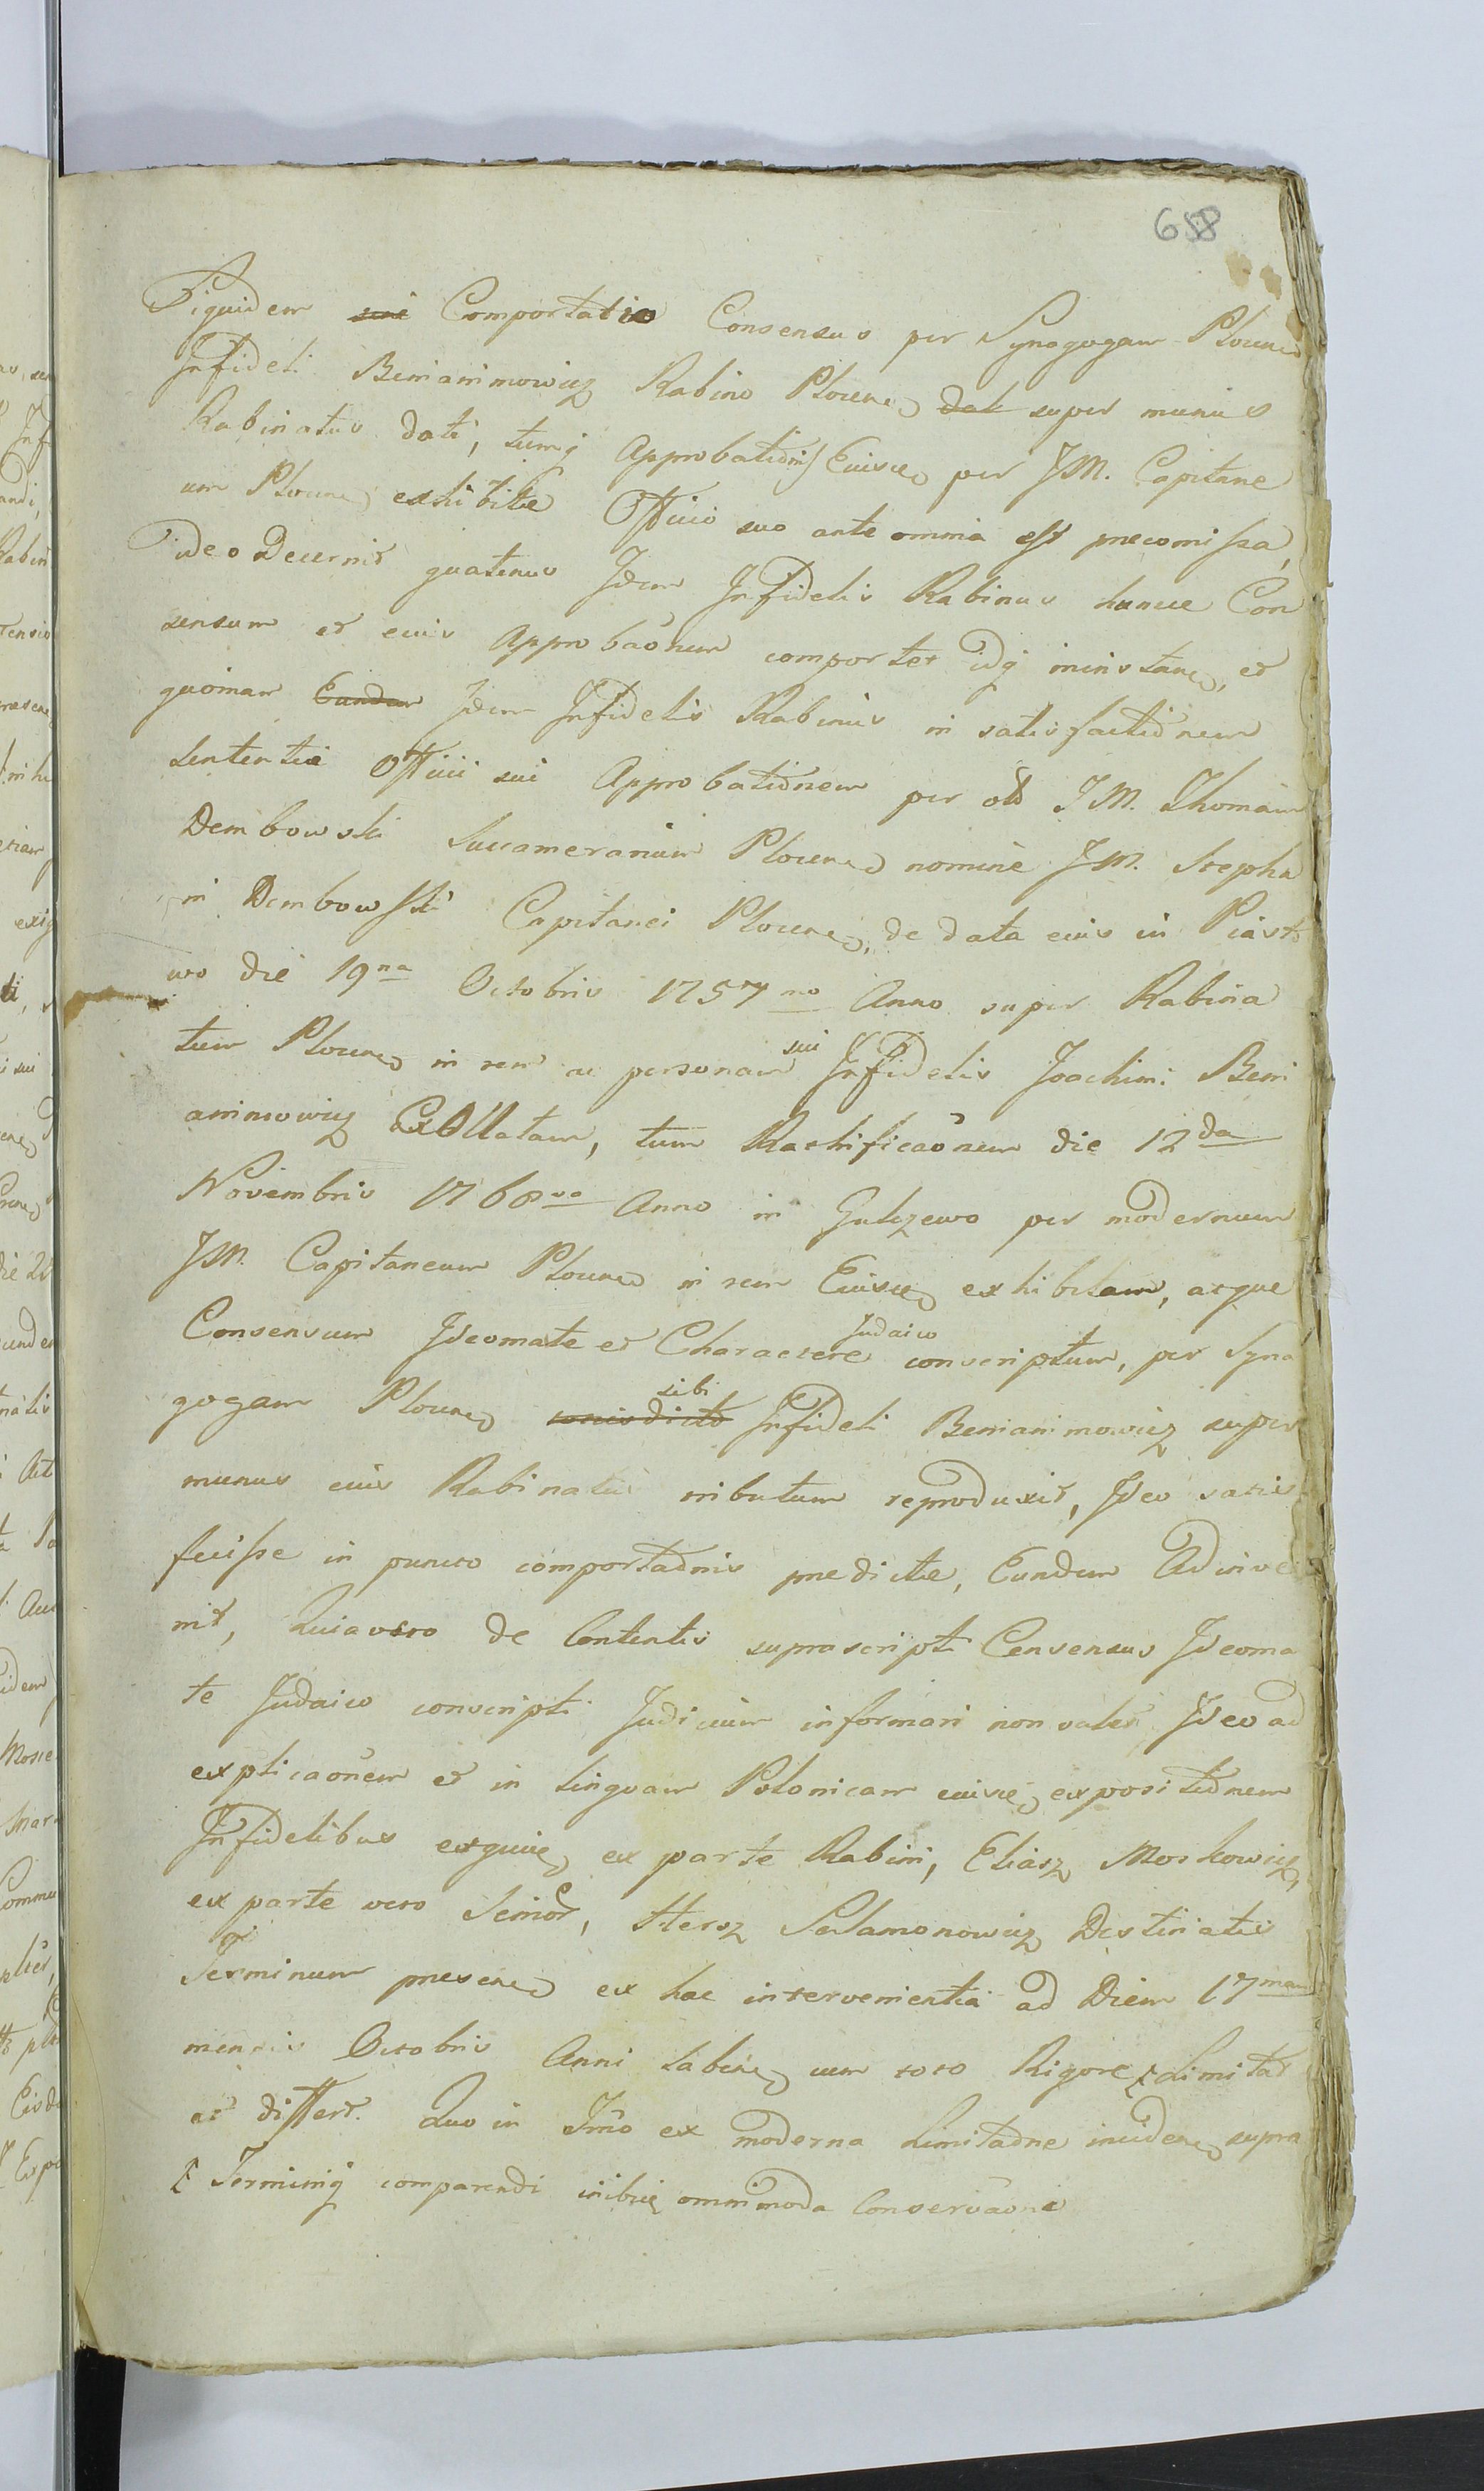 658
Siquidem sui Comportatio Consensus per Synagogam Plocen
Infideli Beniaminowicz Rabino Plocen dat super munus
Rabinatus dati, tumq Approbationis Eiusce per JM. Capitane
um Plocen exhibitæ Officio suo ante omnia est præcomissa,
Ideo Decernit quatenus Idem Infidelis Rabinus hunce Con
sensum et eius Approbaõnem comportet idq ininstanc, et
quoniam Eundem Idem Infidelis Rabinus in satisfactionem
sententiæ Officii sui Approbationem per olb JM. Thomam
Dembowski Succamerarium Plocen nomine JM. Stepha
ni Dembowski Capitanei Plocen, de data eius in Piasto
wo die 19na Octobris 1757mo Anno super Rabina
tum Plocen in rem ac personam sui Infidelis Joachimi Beni
aminowicz Collatam, tum Rathificaõnem die 12da
Novembris 1768vo Anno in Gulczewo per modernum
JM. Capitaneum Plocen in rem Eiusce exhibitam, atque
Consensum Ideomate et Charactere Judaico conscriptum, per Syna
gogam Plocen sibi Infideli Beniaminowicz super
munus eius Rabinatus tributum reproduxit, Ideo satis
fecisse in puncto comportaõnis prædictæ, Eundem Adinve
nit, Quia vero de Contentis suprascripti Consensus Ideoma
te Judaico conscripti Judicium informari non valet Ideo ad
explicaõnem et in linguam Polonicam eiusce expositionem
Infidelibus utquue ex parte Rabini, Eliasz Moskowicz,
ex parte vero Senior, Hersz Salamonowicz Destinatis
Terminum præsen ex hac intervenientia ad Diem 17mam
mensis Octobris Anni laben cum toto Rigore Limitat
et differt. Quo in Tmo ex moderna Limitaõne inciden supra
Terminiq comparendi inibiq omnimoda Conservaõne